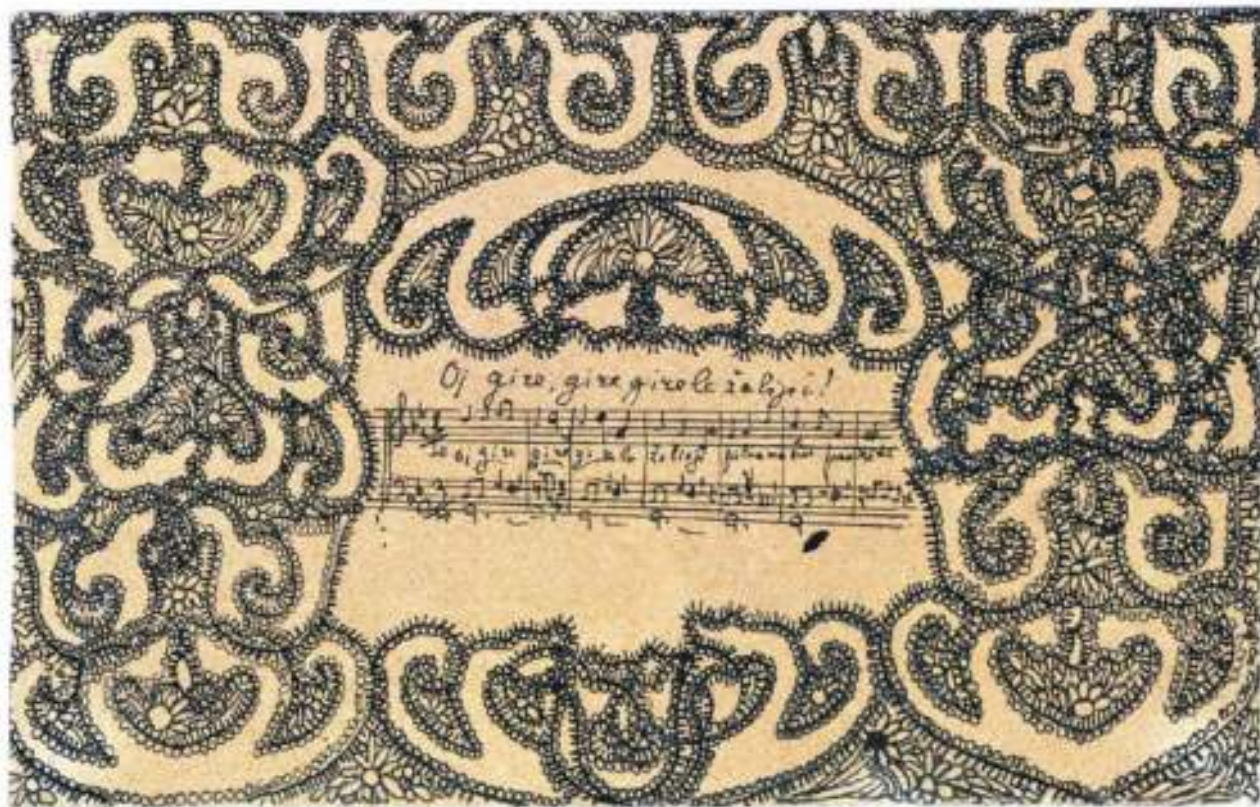 Oj gire, gire girele žalioji!
oj gire gire girele žalioji